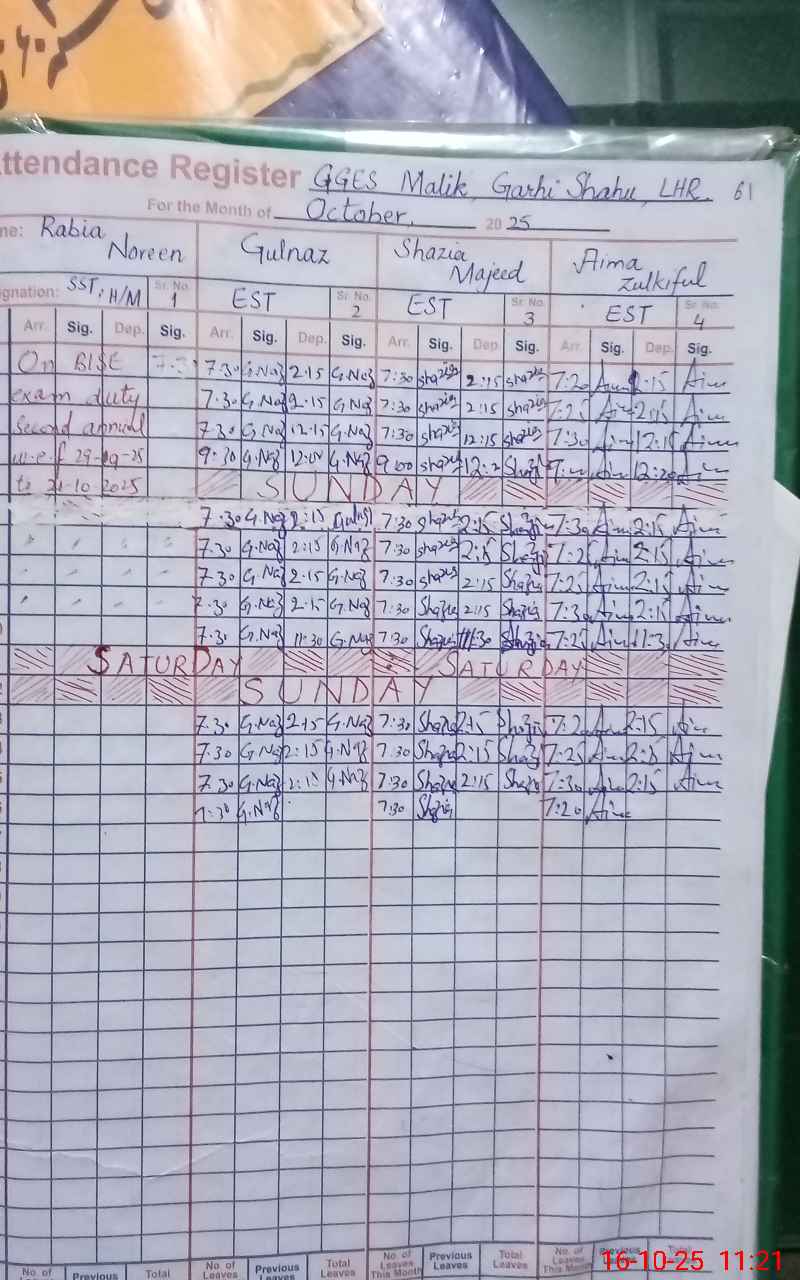 ttendance Register GGES Malik, Garhi Shahu, LHR. 61
For the Month of October, 2025
me: Rabia Noreen Gulnaz Shazia Majeed Aima Zulkiful
gnation: SST, H/M Sr. No. 1 EST Sr. No. 2 EST Sr. No. 3 EST Sr. No. 4
Arr. Sig. Dep. Sig. Arr. Sig. Dep. Sig. Arr. Sig. Dep. Sig. Arr. Sig. Dep. Sig.
On BISE 7.30 G.Naz 2.15 G.Naz 7:30 Shazia 2:15 Shazia 7:20 Aima 2:15 Aima
exam duty 7.30 G.Naz 2.15 G.Naz 7:30 Shazia 2:15 Shazia 7:25 Aima 2:15 Aima
Second annual 7.30 G.Naz 12.15 G.Naz 7:30 Shazia 12:15 Shazia 7:30 Aima 12:15 Aima
w.e.f 29-09-25 9.30 G.Naz G.Naz 9:00 Shazia Aima 12:20 Aima
to 21-10-2025 SUNDAY
7.30 G.Naz 2:15 Gulnaz 7:30 Shazia 2:15 Shazia 7:30 Aima 2:15 Aima
7.30 G.Naz 2:15 G.Naz 7:30 Shazia 2:15 Shazia 7:25 Aima 2:15 Aima
7.30 G.Naz 2.15 G.Naz 7:30 Shazia 2:15 Shazia 7:25 Aima 2:15 Aima
7.30 G.Naz 2.15 G.Naz 7:30 Shazia 2:15 Shazia 7:30 Aima 2:15 Aima
7.30 G.Naz 11.30 G.Naz 7:30 Shazia 11:30 Shazia 7:25 Aima 11:30 Aima
SATURDAY SATURDAY
SUNDAY
7.30 G.Naz 2:15 G.Naz 7:30 Shazia 2:15 Shazia Aima 2:15 Aima
7.30 G.Naz 2:15 G.Naz 7:30 Shazia 2:15 Shazia 7:25 Aima 2:15 Aima
7.30 G.Naz 2:15 G.Naz 7:30 Shazia 2:15 Shazia 7:30 Aima 2:15 Aima
7:30 G.Naz 7:30 Shazia 7:20 Aima
No. of Previous Total No. of Leaves Previous Leaves Total Leaves No. of Leaves This Month Previous Leaves Total Leaves No. of Leaves This Month Previous Leaves Total
16-10-25 11:21